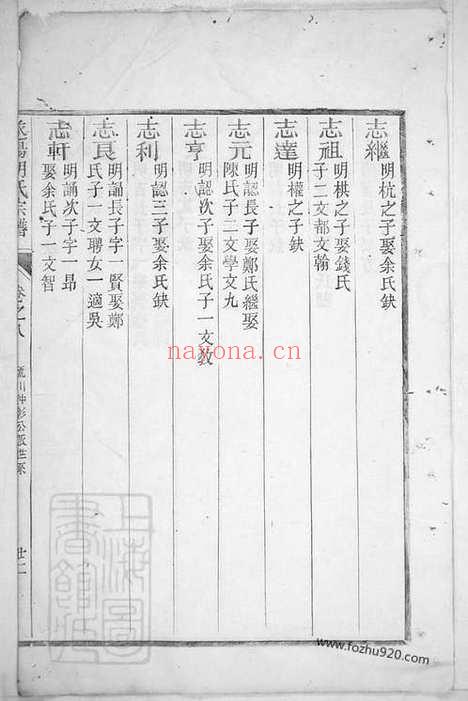 志繼
明杭之子娶余氏缺
志祖
明棋之子娶錢氏
子二文都文翰
志達
明權之子缺
志元
明認長子娶鄭氏繼娶
陳氏子二文學文九
志亨
明認次子娶余氏子一文教
志利
明認三子娶余氏缺
志良
明誦長子字一賢娶鄭
氏子一文聘女一適吳
志軒
明誦次子字一昂
娶余氏子一文智
氏宗譜
卷之八
派世系
廿二
nayona.cn
www.fozhu920.com